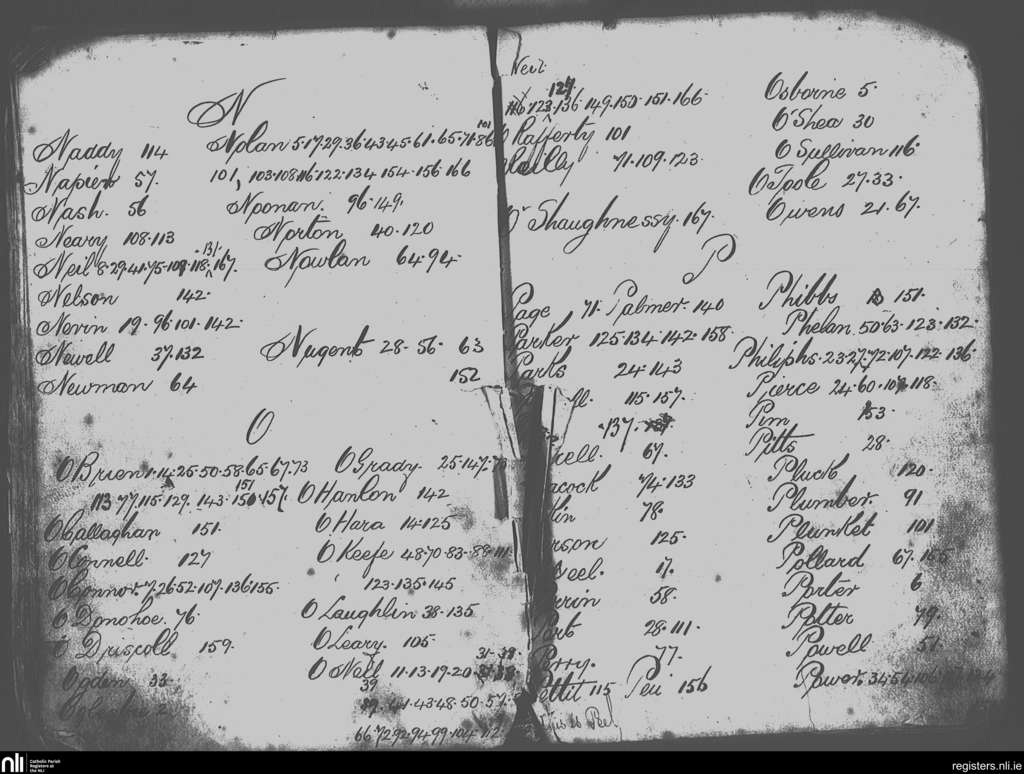 N
Naddy 114
Napier 57.
Nash. 56
Neary 108.113
Neil 8.29.41.75.109.118.131.167.
Nelson 142.
Nevin 19.96.101.142.
Newell 37.132
Newman 64
Nolan 5.17.29.36.43.45.61.65.71.86
101, 103.108.116.122.134.154.156.166
Noonan. 96.149.
Norton 40.120
Nowlan 64.94.
Nugent 28.56. 63
152
O
O'Brien 1.14.25.50.58.65.67.73
113.77.115.129.143.150.151.157.
O'Callaghan 151.
O'Connell. 127
O'Connor. 7.26.52.107.136.155.
O'Donohoe. 76.
O'Driscoll 159.
Ogden 33.
O'Grady. 25.147.
O'Hanlon 142
O'Hara 14.125
O'Keefe 48.70.83.88.111.
123.135.145
O'Laughlin 38.135
O'Leary. 105
31.38.
O'Neil 11.13.19.20.
39
41.43.48.50.57.
66.72.92.94.99.104.112
Neil
124
123.136.149.150.151.166
O'Rafferty 101
71.109.123
O'Shaughnessy. 167.
Osborne 5.
O'Shea 30
O'Sullivan 116.
O'Toole 27.33.
Owens 21.67.
P
Page 71. Palmer. 140
Parker 125.134.142.158
Parks 24.143
115.157.
137.
67.
74.133
78.
125.
17.
58.
Port 28.111.
Perry. 77.
Pettit 115 Pei 156
This is Peel
Phibbs 151.
Phelan. 50.63.123.132.
Philiphs. 23.27.72.107.122.136
Pierce 24.60.107.118.
Pim 153.
Pitts 28.
Pluck 120.
Plumber. 91
Plunket 101
Pollard 67.155
Porter 6
Potter 79.
Powell 51.
Power. 34.54.106
nli
Catholic Parish
Registers at
the NLI
registers.nli.ie